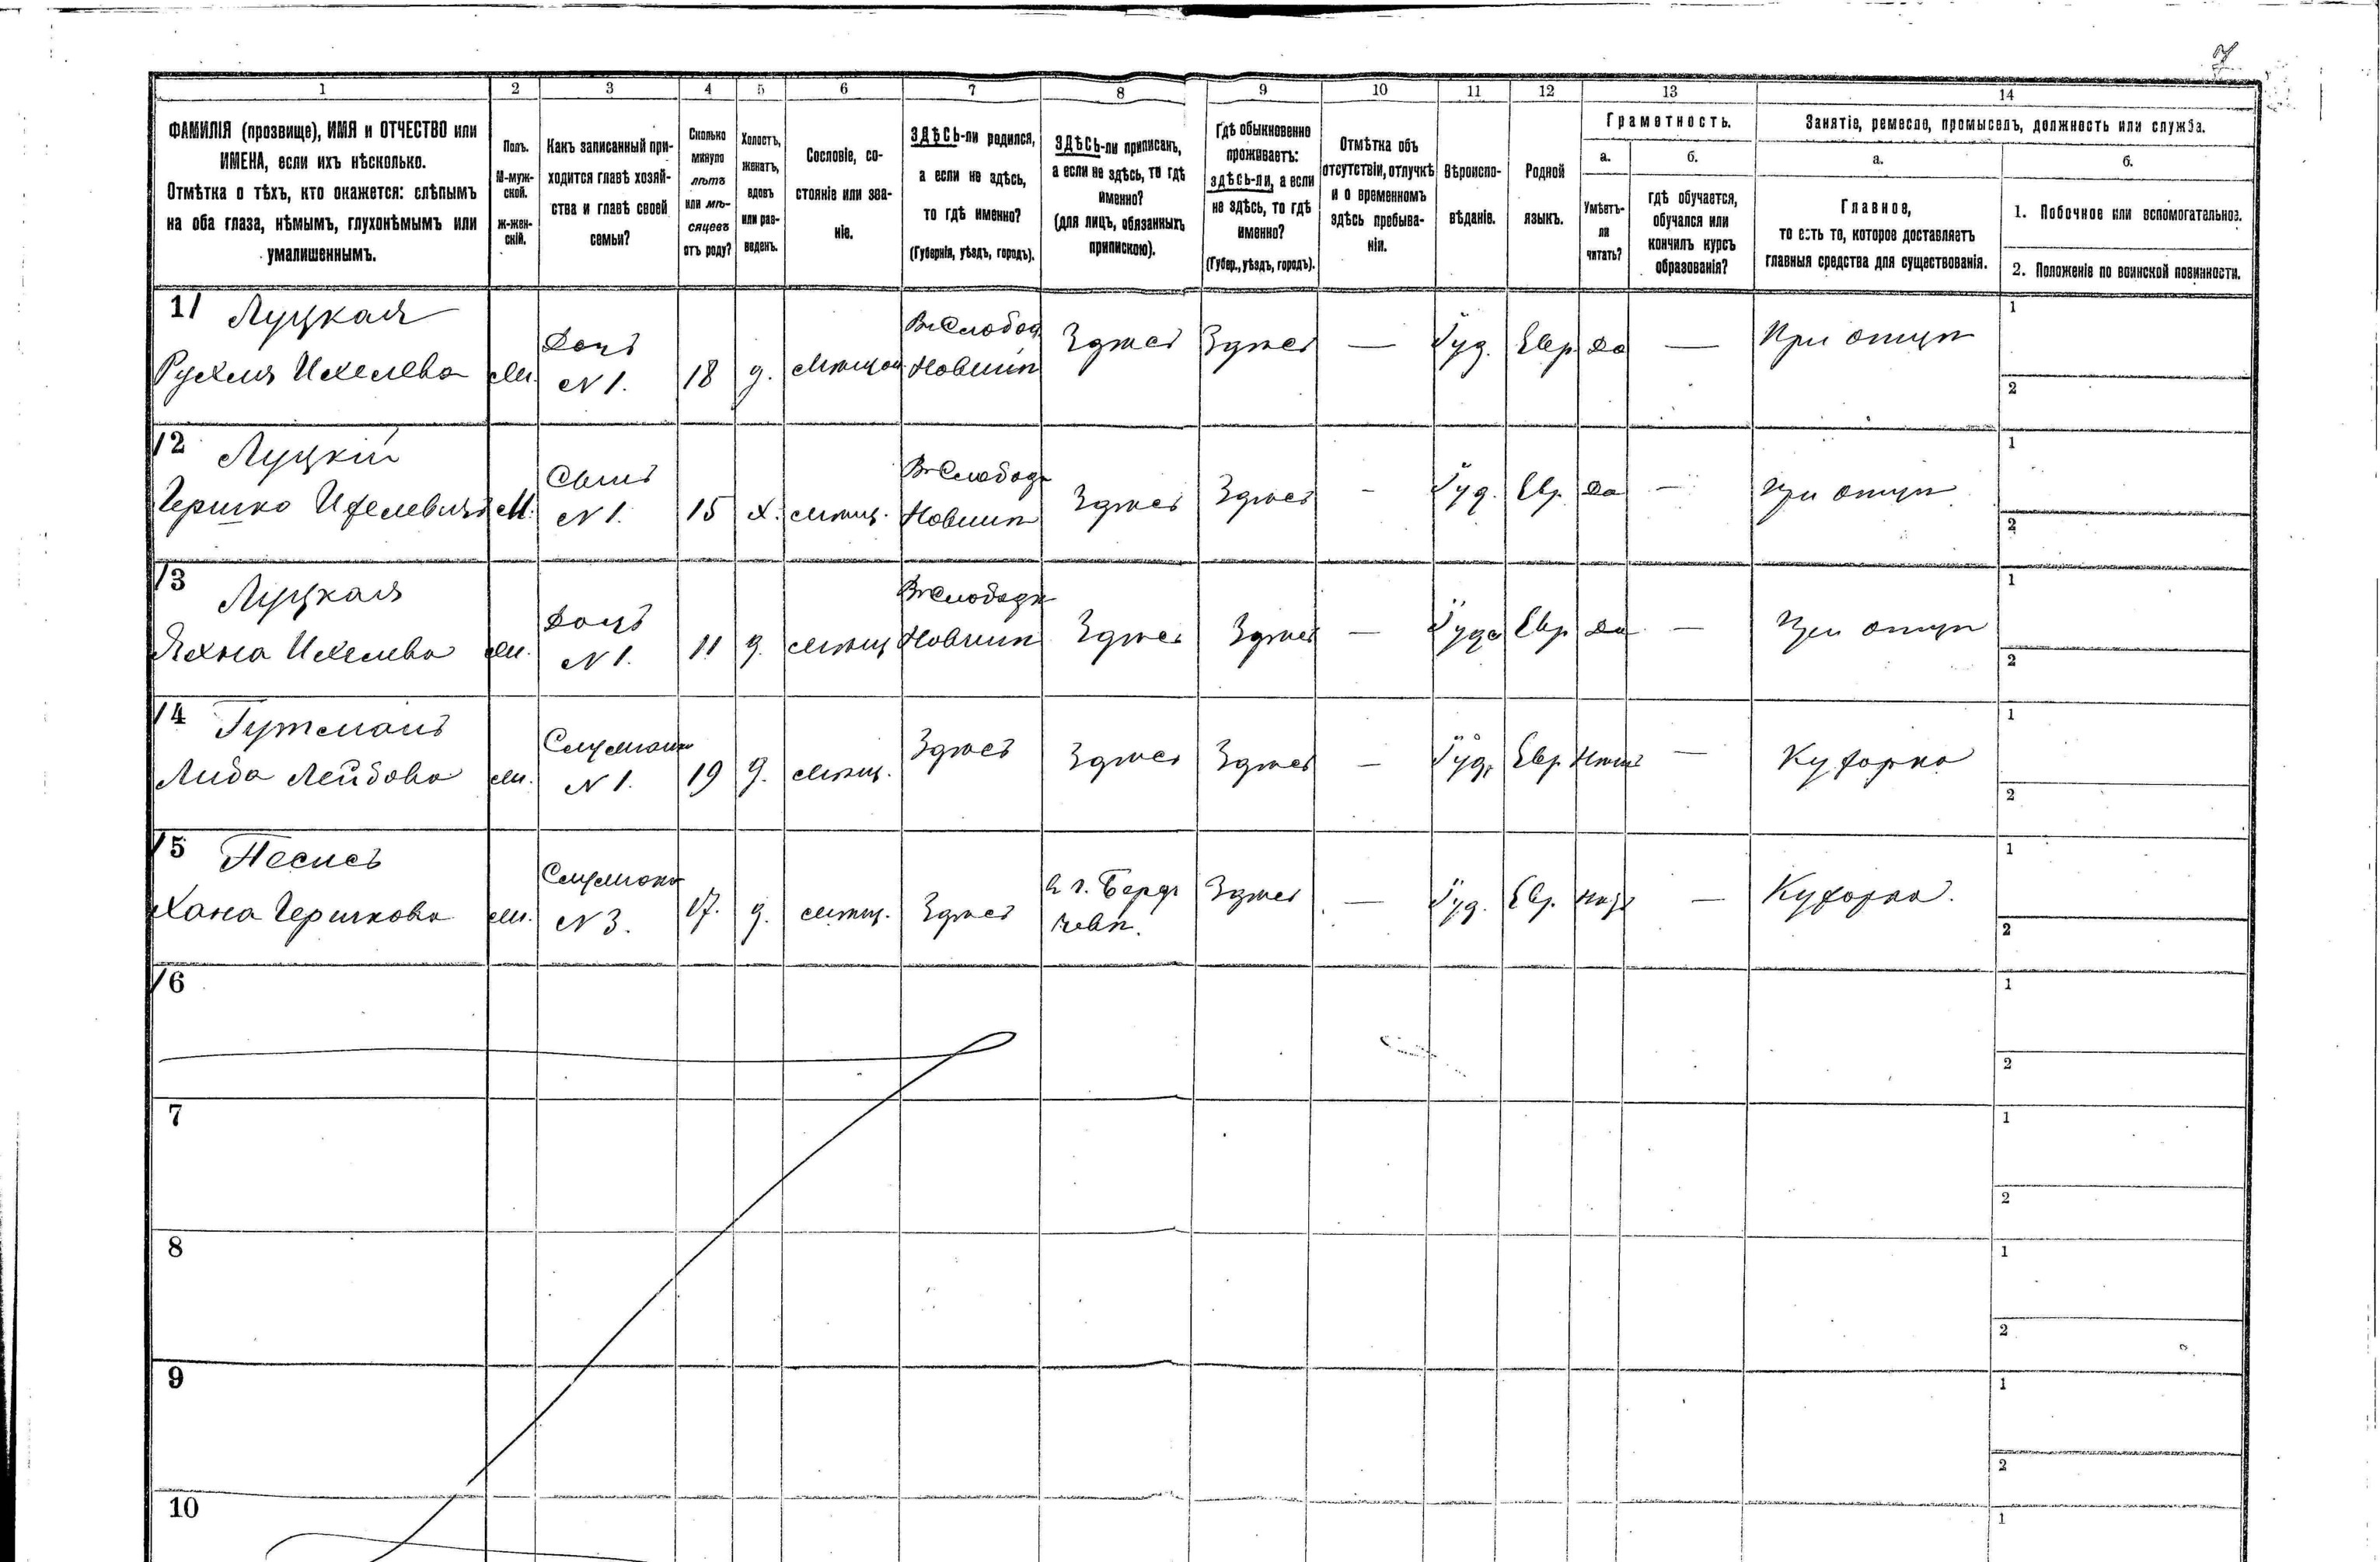 1 2 3 4 5 6 7 8 9 10 11 12 13 14
ФАМИЛІЯ (прозвище), ИМЯ и ОТЧЕСТВО или
ИМЕНА, если ихъ нѣсколько.
Отмѣтка о тѣхъ, кто окажется: слѣпымъ
на оба глаза, нѣмымъ, глухонѣмымъ или
умалишеннымъ.
Полъ.
М-муж-
ской.
Ж-жен-
скій.
Какъ записанный при-
ходится главѣ хозяй-
ства и главѣ своей
семьи?
Сколько
минуло
лѣтъ
или мѣ-
сяцевъ
отъ роду?
Холостъ,
женатъ,
вдовъ
или раз-
веденъ.
Сословіе, со-
стояніе или зва-
ніе.
ЗДѢСЬ-ли родился,
а если не здѣсь,
то гдѣ именно?
(Губернія, уѣздъ, городъ).
ЗДѢСЬ-ли приписанъ,
а если не здѣсь, то гдѣ
именно?
(для лицъ, обязанныхъ
припискою).
Гдѣ обыкновенно
проживаетъ:
здѣсь-ли, а если
не здѣсь, то гдѣ
именно?
(Губер., уѣздъ, городъ).
Отмѣтка объ
отсутствіи, отлучкѣ
и о временномъ
здѣсь пребыва-
ніи.
Вѣроиспо-
вѣданіе.
Родной
языкъ.
Грамотность.
а.
Умѣетъ-
ли
читать?
б.
гдѣ обучается,
обучался или
кончилъ курсъ
образованія?
Занятіе, ремесло, промыселъ, должность или служба.
а.
Главное,
то есть то, которое доставляетъ
главныя средства для существованія.
б.
1. Побочное или вспомогательное.
2. Положеніе по воинской повинности.
11 Луцкая
Рухля Ихелева
Дочь
N 1.
18
д.
Въ Слобод
Новики
Здѣсь Здѣсь — Іуд. Евр да — При отцѣ
1
2
12 Луцкій
Гершко Ихелевичъ М.
Сынъ
N 1.
15 х. мѣщ.
Въ Слободѣ
Здѣсь Здѣсь - Іуд. Евр. да — При отцѣ
1
2
13 Луцкая
Яхна Ихелева
Дочь
N 1.
11 д. мѣщ
Въ Слободѣ
Здѣсь Здѣсь — Іуд Евр да — При отцѣ
1
2
14 Гутманъ
Либа Лейбова
N 1.
19 д. мѣщ.
Здѣсь Здѣсь Здѣсь — Іуд. Евр Нѣтъ — Кухарка
1
2
15 Песисъ
Хана Гершкова
N 3.
17. д. мѣщ. Здѣсь
в г. Берди
чевѣ.
Здѣсь — Іуд. Евр. нѣтъ — Кухарка.
1
2
16
1
2
7
1
2
8
1
2
9
1
2
10
1